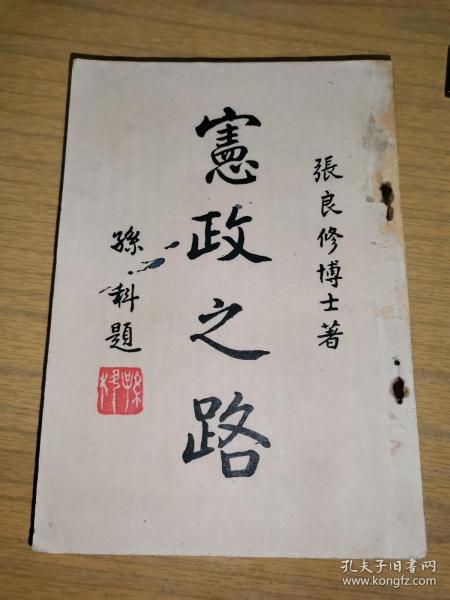 張良修博士著
憲政之路
孫科題
孫科
孔夫子旧书网
www.kongfz.com